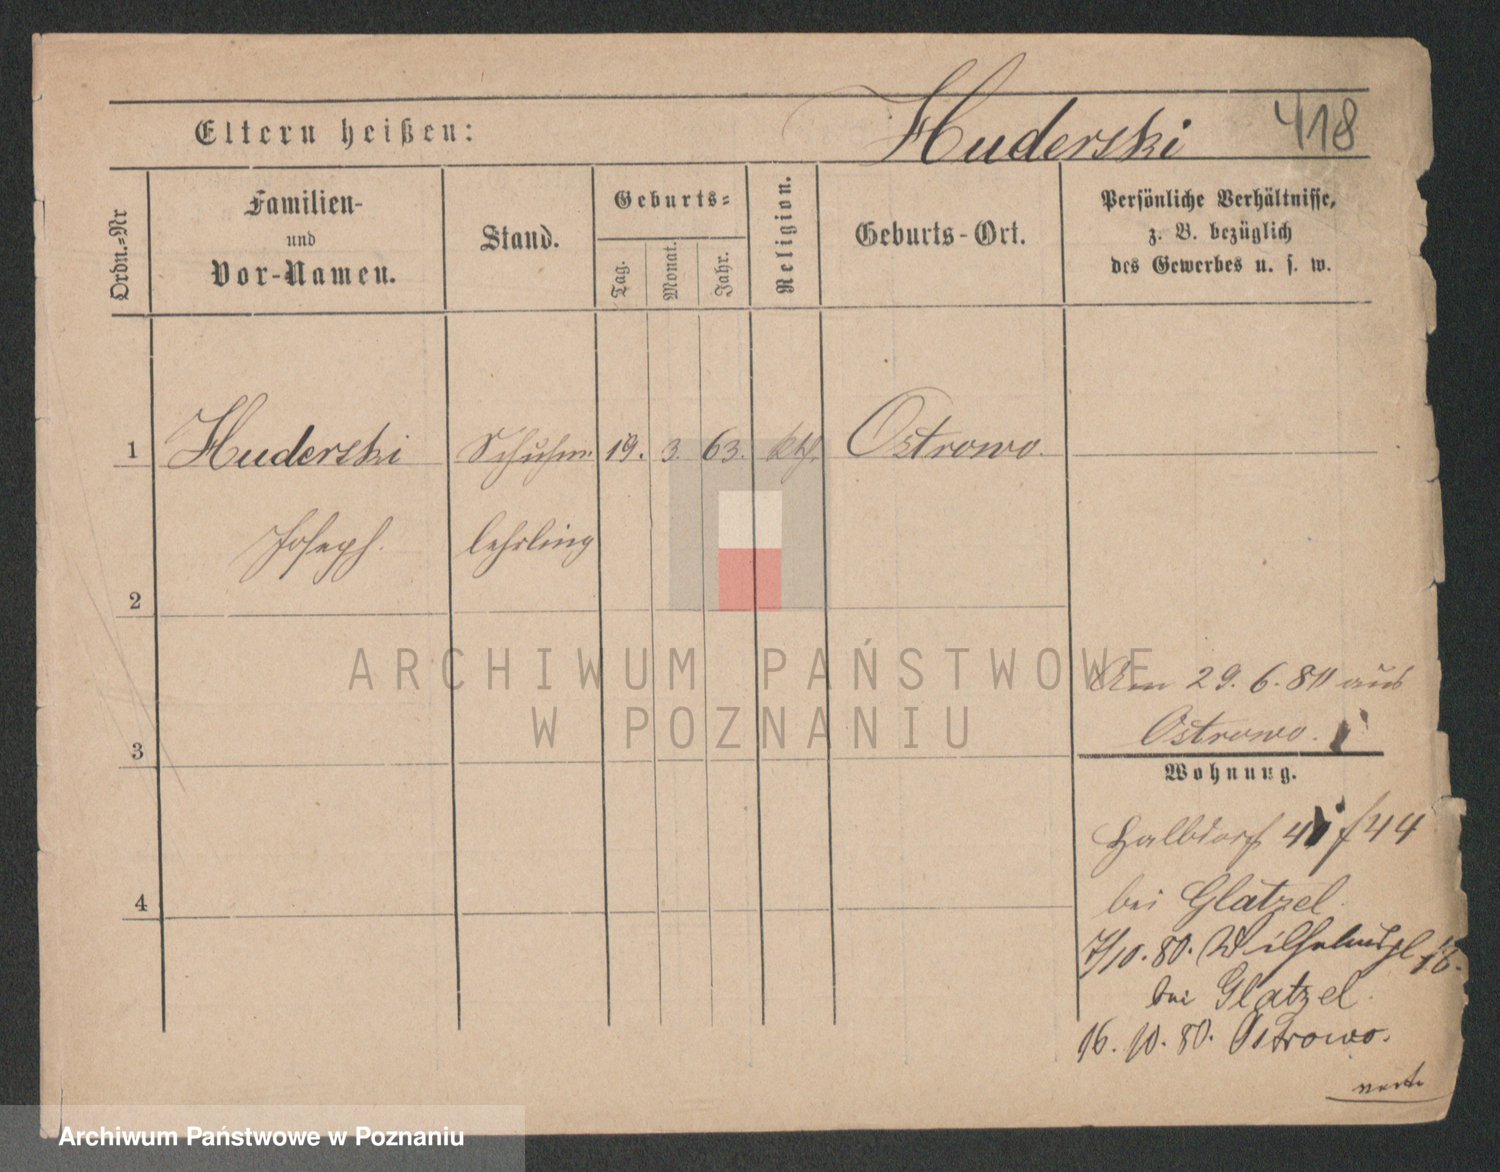 Huderski
418
Eltern heißen:
Ordn.=Nr
Familien-
und
Vor-Namen.
Stand.
Geburts=
Tag.
Monat.
Jahr.
Religion.
Geburts-Ort.
Persönliche Verhältnisse,
z. B. bezüglich
des Gewerbes u. s. w.
1 Huderski Schuhm. 19. 3. 63. kth. Ostrowo.
Joseph. lehrling
2
3
4
Am 29. 6. 80 aus
Ostrowo.
Wohnung.
Halbdorf 44
bei Glatzel
7/10. 80. Wilhelmspl 16.
bei Glatzel
16. 10. 80. Ostrowo.
ARCHIWUM PAŃSTWOWE
W POZNANIU
Archiwum Państwowe w Poznaniu